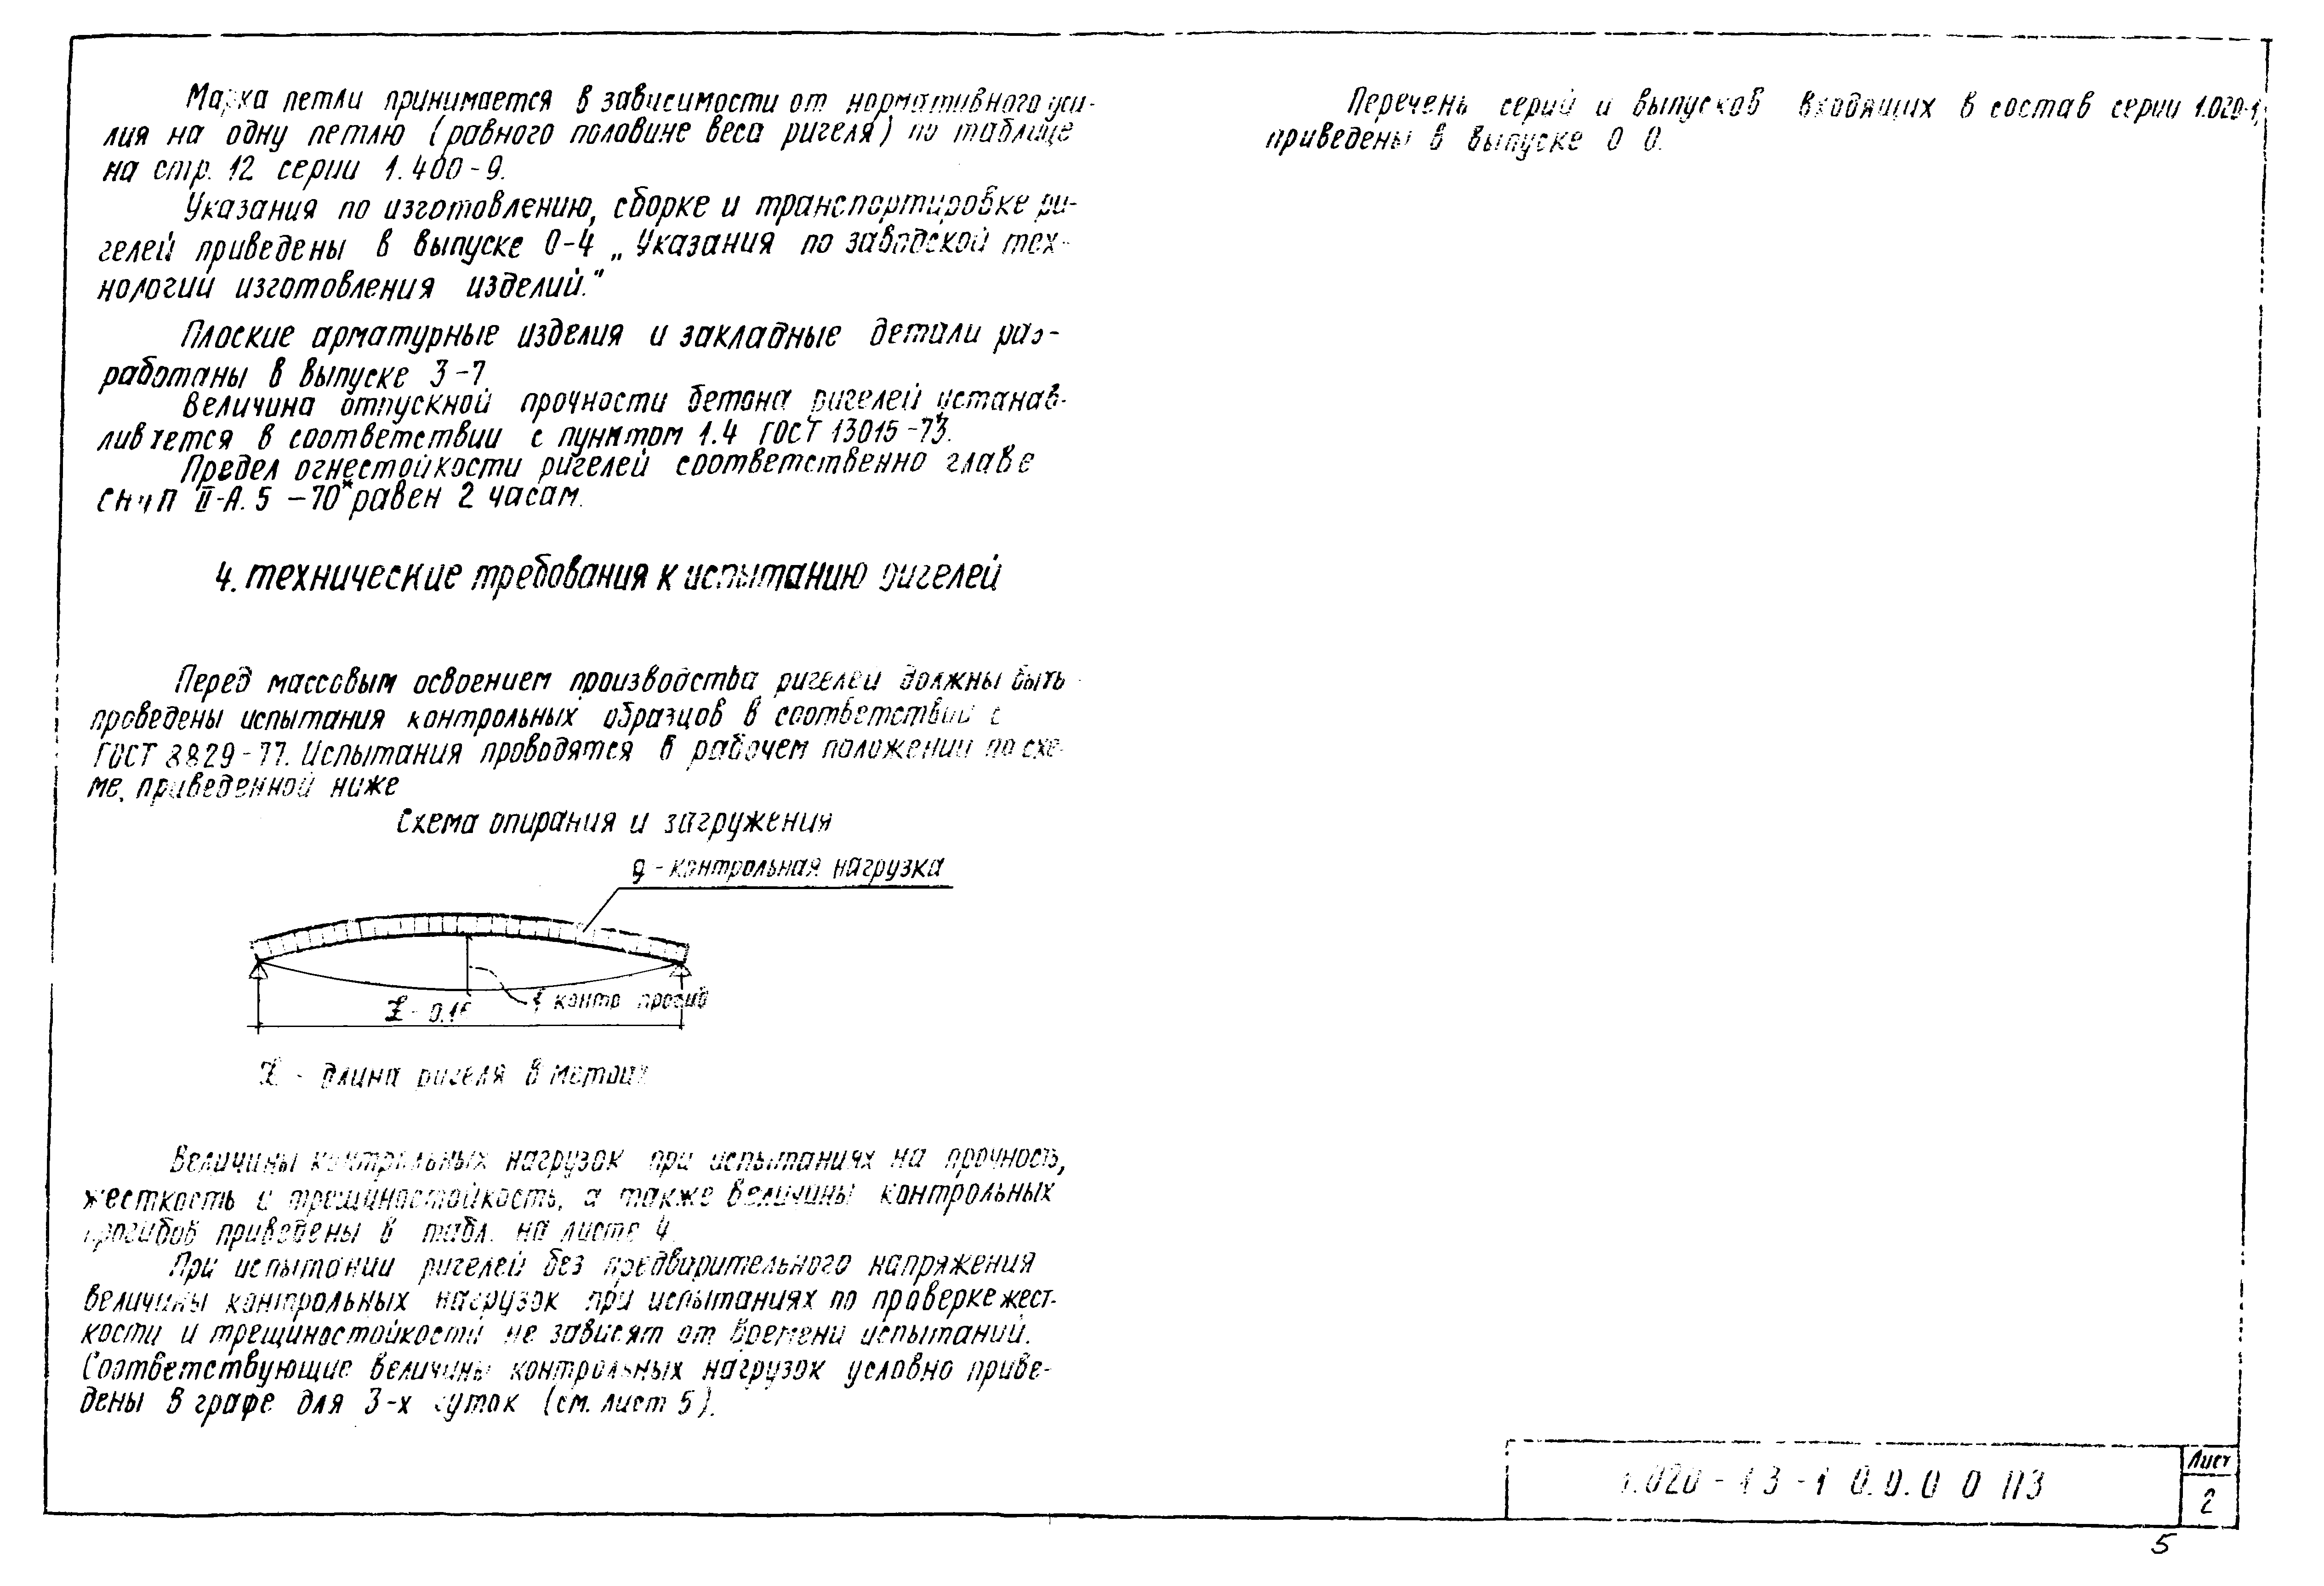 Марка петли принимается в зависимости от нормативного уси-
лия на одну петлю (равного половине веса ригеля) по таблице
на стр. 12 серии 1.400-9.
Указания по изготовлению, сборке и транспортировке ри-
гелей приведены в выпуске 0-4 „Указания по заводской тех-
нологии изготовления изделий."
Плоские арматурные изделия и закладные детали раз-
работаны в выпуске 3-7
Величина отпускной прочности бетона ригелей устанав-
ливается в соответствии с пунктом 1.4 ГОСТ 13015-73.
Предел огнестойкости ригелей соответственно главе
СНиП II-А.5-70* равен 2 часам.
4. технические требования к испытанию ригелей
Перед массовым освоением производства ригелей должны быть
проведены испытания контрольных образцов в соответствии с
ГОСТ 8829-77. Испытания проводятся в рабочем положении по схе-
ме, приведенной ниже
Схема опирания и загружения
g - контрольная нагрузка
f контр прогиб
L - 0.15
L - длина ригеля в метрах
Величины контрольных нагрузок при испытаниях на прочность,
жесткость и трещиностойкость, а также величины контрольных
прогибов приведены в табл. на листе 4.
При испытании ригелей без предварительного напряжения
величины контрольных нагрузок при испытаниях по проверке жест-
кости и трещиностойкости не зависят от времени испытаний.
Соответствующие величины контрольных нагрузок условно приве-
дены в графе для 3-х суток (см. лист 5).
Перечень серий и выпусков входящих в состав серии 1.020-1,
приведены в выпуске 0 0.
1.020-1 3-1 0.0.0 0 ПЗ
Лист
2
5